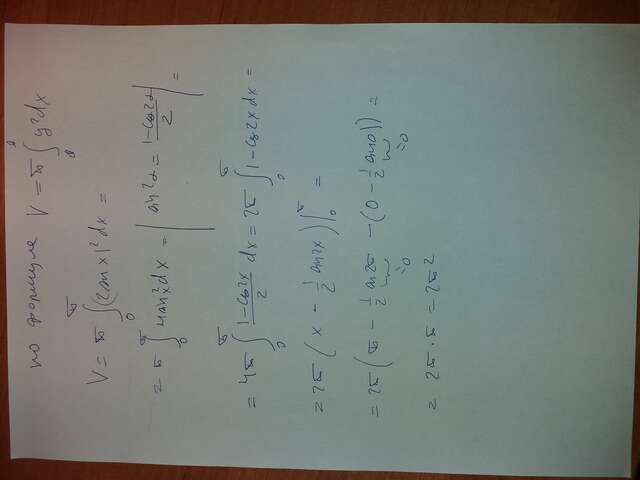 по формуле V = π ∫ y² dx
V = π ∫₀^π (2sin x)² dx =
= π ∫₀^π 4sin²x dx = | sin²α = (1-cos2α)/2 | =
= 4π ∫₀^π (1-cos2x)/2 dx = 2π ∫₀^π 1-cos2x dx =
= 2π (x - 1/2 sin2x) |₀^π =
= 2π (π - 1/2 sin2π - (0 - 1/2 sin0)) =
=0 =0
= 2π·π = 2π²